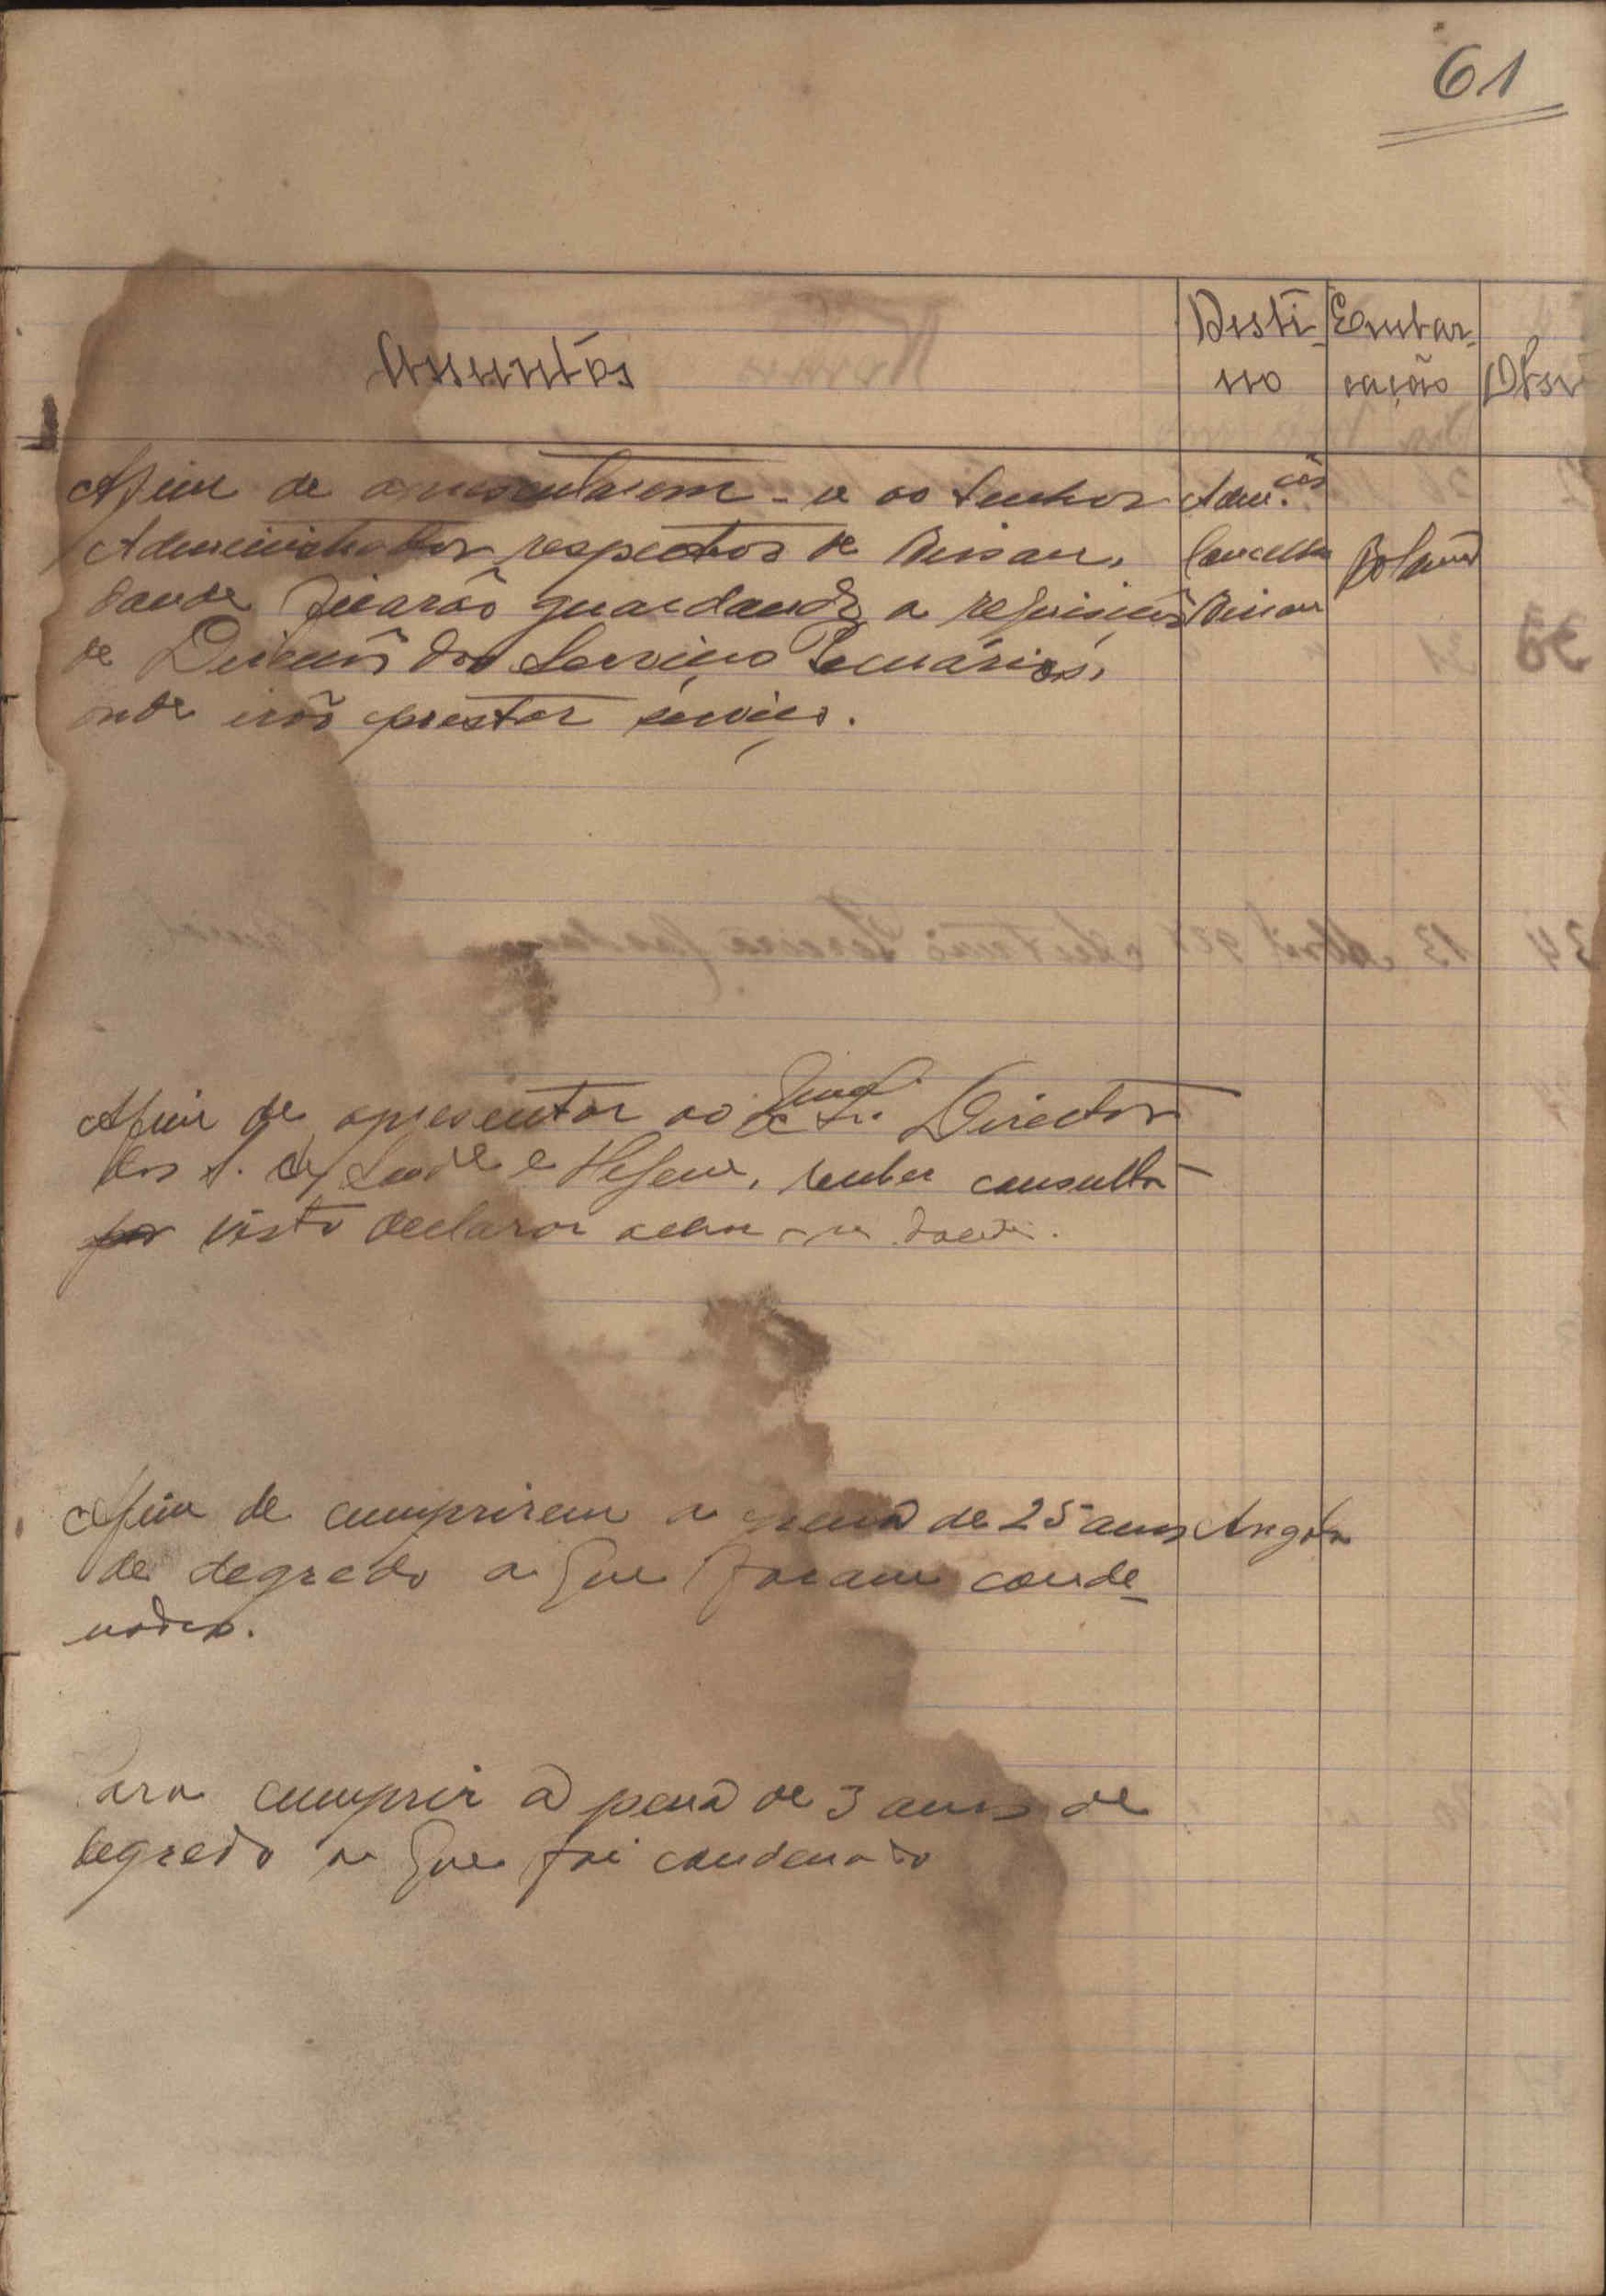 61
Assuntos
Desti-
no
Embar-
cação
Obser
Afim de apresentarem-se ao Senhor
Administrador respectivos de Bissau,
ficarão guardando a requisição
de Direcção dos Serviços Pecuários,
onde irão prestar serviço.
Adm.ção
Concelho
Bissau
Bolama
Afim de apresentar ao Director
dos S. de Saude e Higene, consulta
visto declarar achar-se doente.
Afim de cumprirem a pena de 25 anos
de degredo a que foram conde-
nados.
Angola
ara cumprir a pena de 3 anos de
degredo a que foi condenado